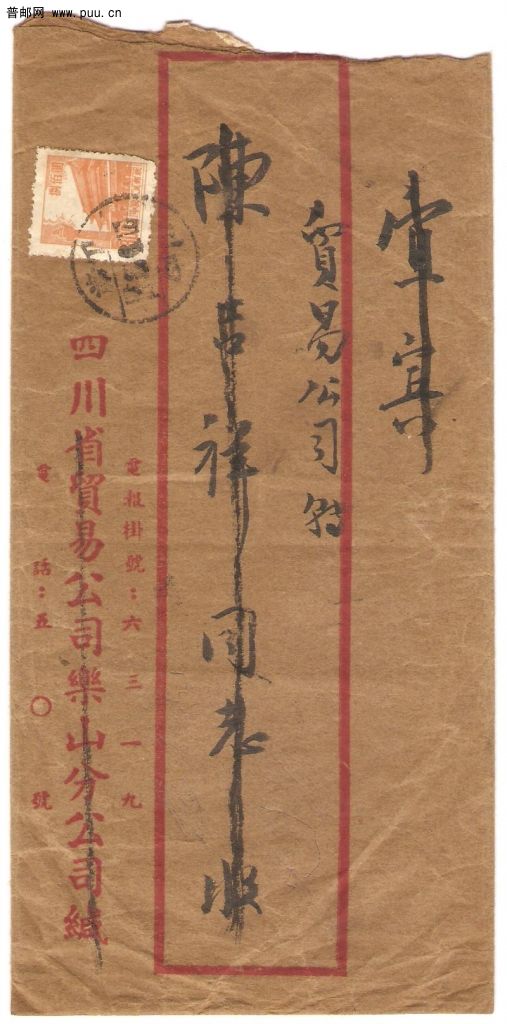 普邮网 www.puu.cn
貿易公司轉
陳吉祥同志收
電報掛號：六三一九
四川省貿易公司樂山分公司緘
電話：五〇號